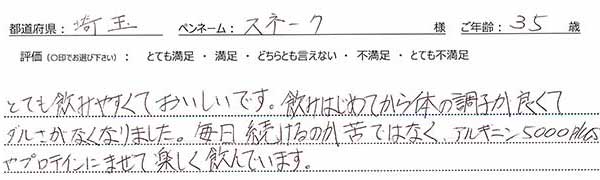 都道府県： 埼玉 ペンネーム： スネーク 様 ご年齢： 35 歳
評価 （○印でお選び下さい） ： とても満足 ・ 満足 ・ どちらとも言えない ・ 不満足 ・ とても不満足
とても飲みやすくておいしいです。飲みはじめてから体の調子が良くて
ダルさがなくなりました。毎日 続けるのが苦ではなく、アルギニン5000Plus
やプロテインにまぜて楽しく飲んでいます。